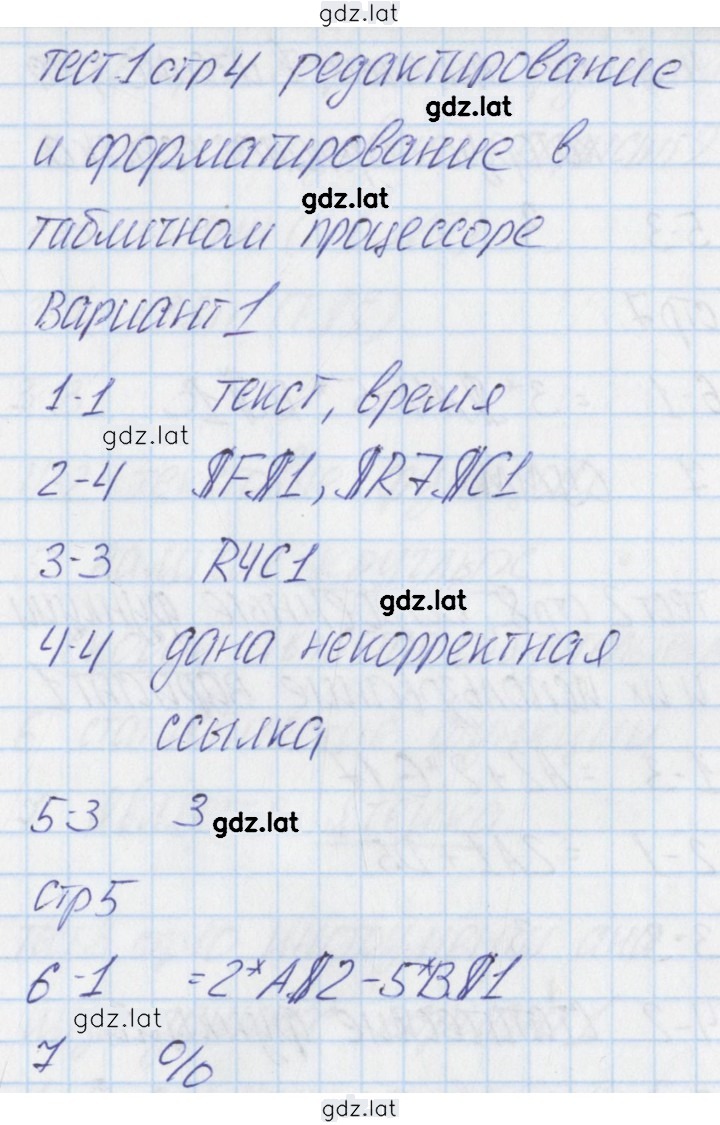 gdz.lat
тест 1 стр 4 редактирование
gdz.lat
и форматирование в
gdz.lat
табличном процессоре
Вариант 1
1-1 текст, время
gdz.lat
2-4 $F$1, $R7$C1
3-3 R4C1
gdz.lat
4-4 дана некорректная
ссылка
5-3 3
gdz.lat
стр 5
6-1 =2*A$2-5*B$1
gdz.lat
7 %
gdz.lat